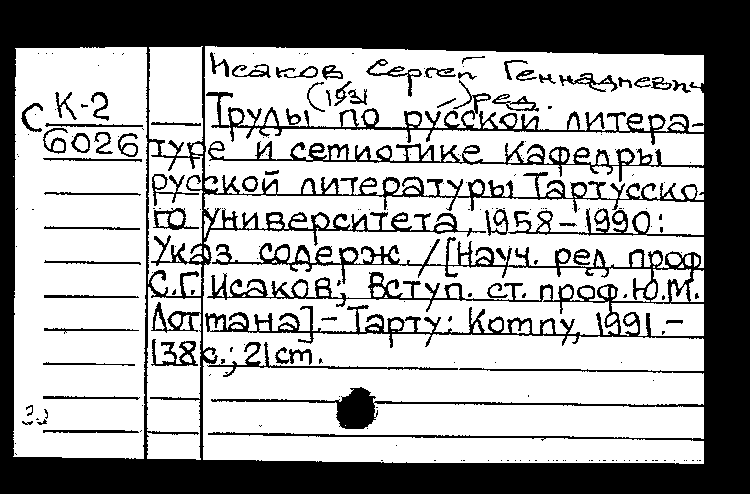 Исаков Сергей Геннадиевич
(1931 ) ред.
С К-2 Труды по русской литера-
6026 туре и семиотике кафедры
русской литературы Тартусско-
го университета, 1958-1990:
Указ. содерж. / [Науч. ред. проф
С.Г. Исаков; Вступ. ст. проф. Ю.М.
Лотмана].- Тарту: Компу, 1991.-
138с.; 21 cm.